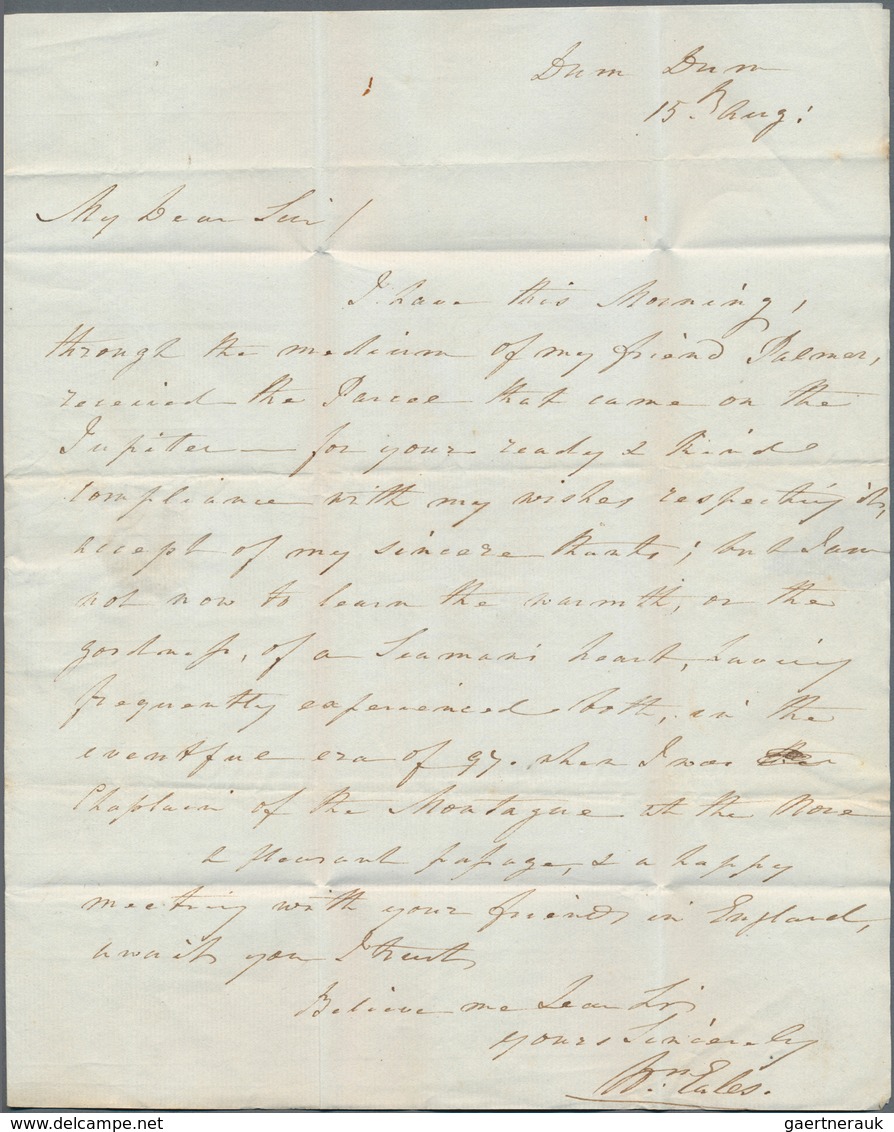 Dum Dum
15th Aug:
My Dear Sir /
I have this Morning,
through the medium of my friend Palmer,
received the Parcel that came on the
Jupiter — for your ready & kind
compliance with my wishes respecting it,
accept of my sincere thanks; but I am
not now to learn the warmth, or the
goodness, of a Seaman's heart, having
frequently experienced both, in the
eventful era of 97. when I was
Chaplain of the Montague at the Nore
A pleasant passage, & a happy
meeting with your friends in England,
await you I trust
Believe me Dear Sir
Yours Sincerely
Wm Eales.
delcampe.net
gaertnerauk